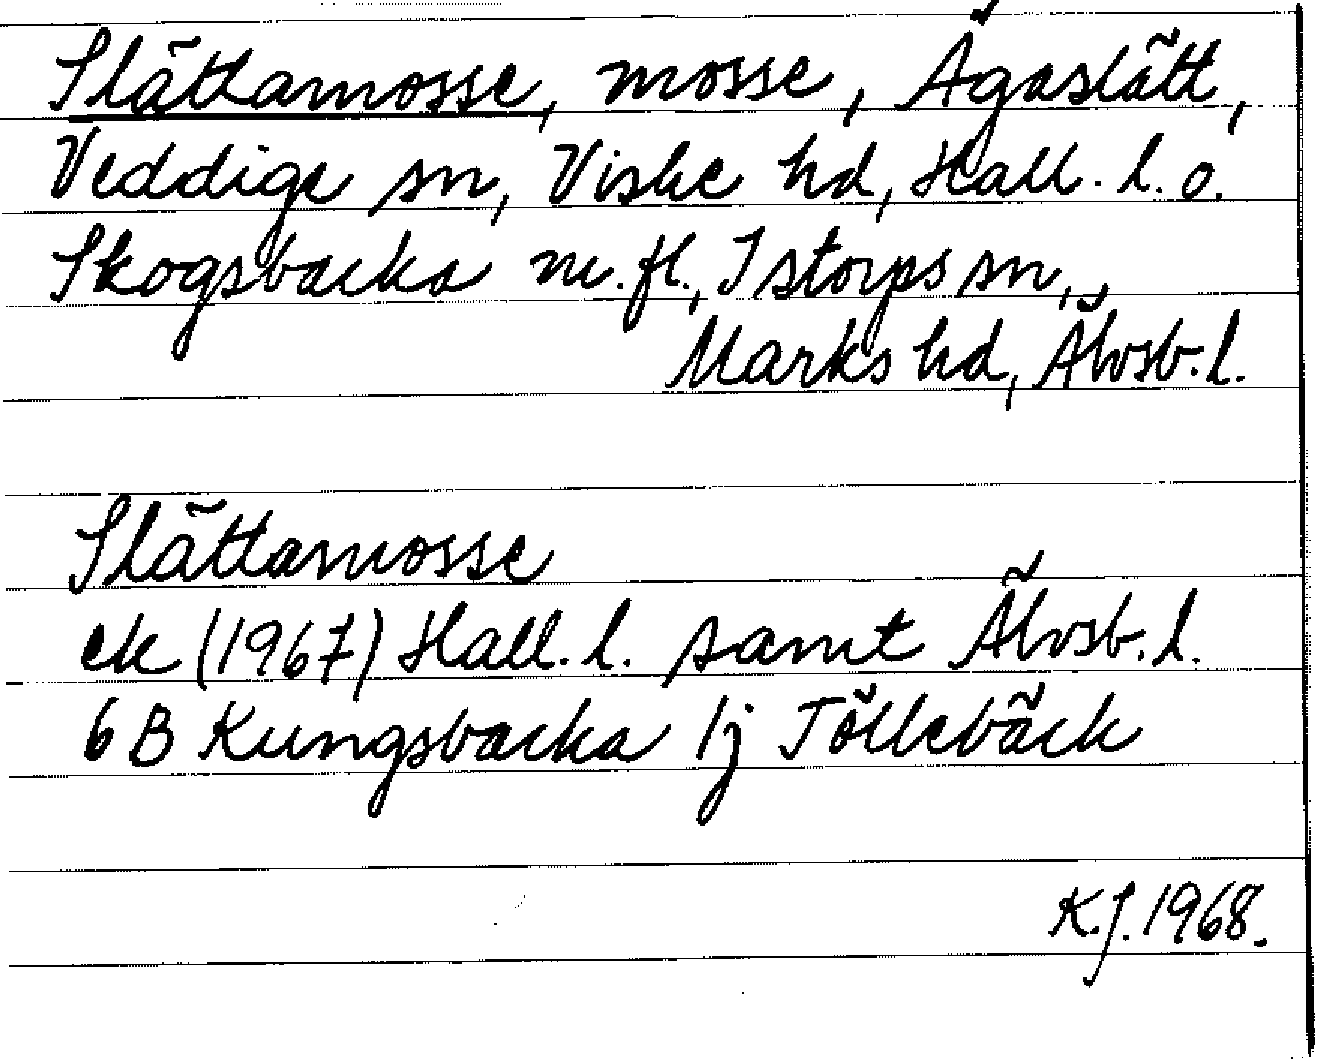 Slättamosse, mosse, Ågaslätt,
Veddige sn, Viske hd, Hall. l. o.
Skogsbacka m.fl., Istorps sn,
Marks hd, Älvsb. l.
Slättamosse
ek (1967) Hall. l. samt Älvsb. l.
6 B Kungsbacka 1j Töllebäck
K.J. 1968.